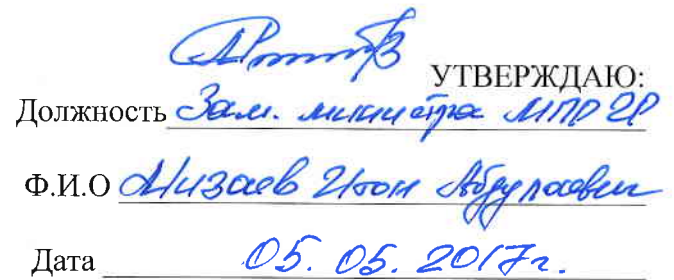 УТВЕРЖДАЮ:
Должность Зам. министра МПР ЧР
Ф.И.О Мизаев Абдулаевич
Дата 05. 05. 2017г.